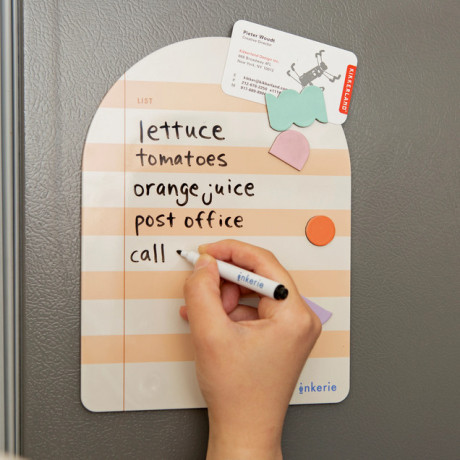 Pieter Woudt
Creative Director
KIKKERLAND
LIST
lettuce
tomatoes
orange juice
post office
call
inkerie
inkerie